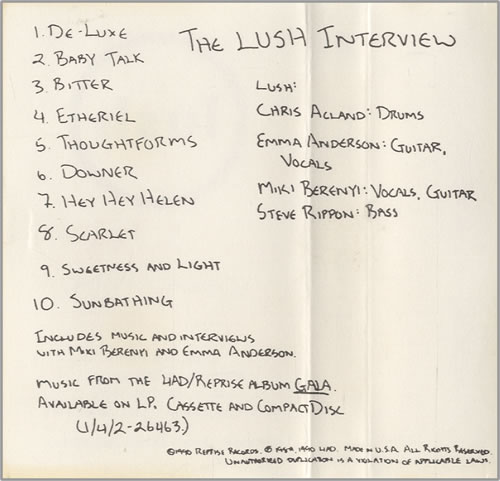 1. De-Luxe
2. Baby Talk
3. Bitter
4. Etheriel
5. Thoughtforms
6. Downer
7. Hey Hey Helen
8. Scarlet
9. Sweetness and Light
10. Sunbathing
Includes music and interviews
with Miki Berenyi and Emma Anderson.
Music from the 4AD/Reprise album Gala.
Available on LP, Cassette and Compact Disc
(1/4/2-26463.)
The Lush Interview
Lush:
Chris Acland: Drums
Emma Anderson: Guitar,
Vocals
Miki Berenyi: Vocals, Guitar
Steve Rippon: Bass
©1990 Reprise Records, ℗ 1990 4AD. Made in U.S.A. All Rights Reserved.
Unauthorized duplication is a violation of applicable laws.